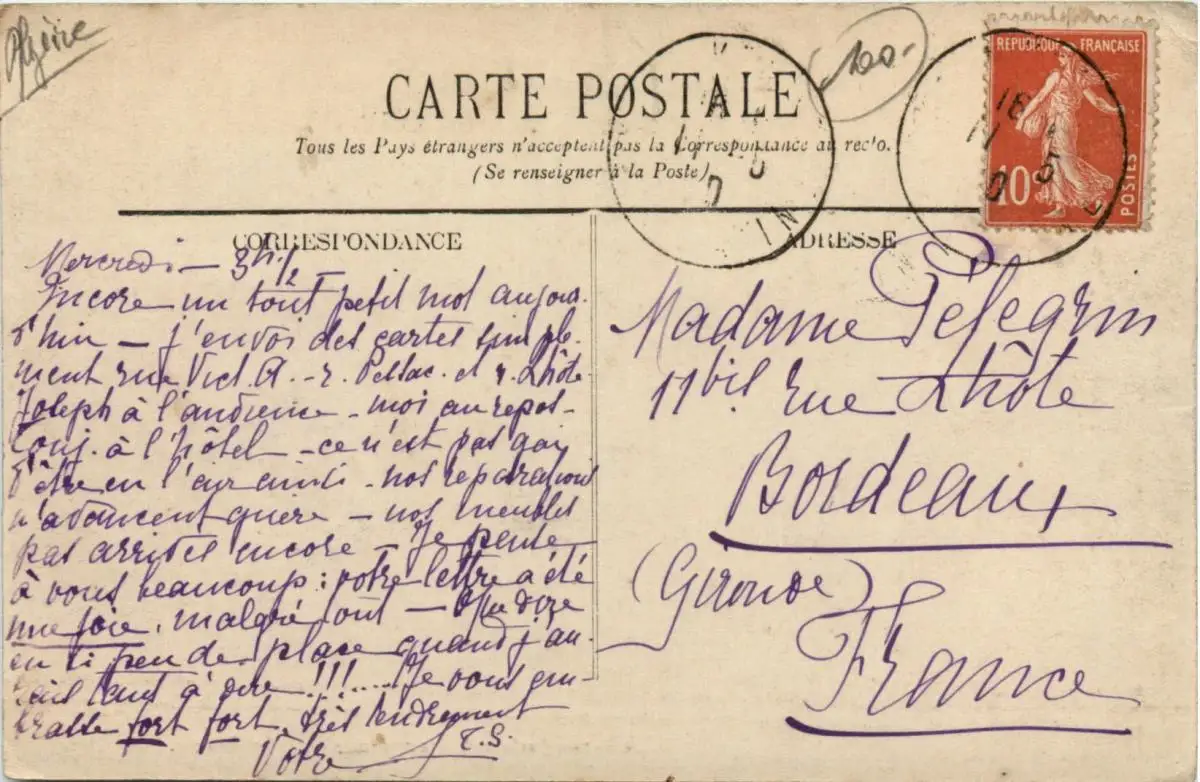 Algérie
100.-
CARTE POSTALE
Tous les Pays étrangers n'acceptent pas la Correspondance au recto.
(Se renseigner à la Poste)
REPUBLIQUE FRANÇAISE
10c
POSTES
CORRESPONDANCE
Mercredi – 3h. 1/2
Encore un tout petit mot aujour-
d'hui – j'envoi des cartes simple-
ment rue Vict. A. – r. Pessac. et r. Lhôte.
Joseph à l'audience – moi au repos –
touj. à l'hôtel – ce n'est pas gai
d'être en l'air ainsi – nos réparations
n'avancent guère – nos meubles
pas arrivés encore – Je pense
à vous beaucoup : votre lettre a été
une joie, malgré tout – Que dire
en si peu de place quand j'au-
rais tant à dire !!!..... Je vous em-
brasse fort fort, très tendrement
Votre T.S.
ADRESSE
Madame Pélegrin
11bis rue Lhôte
Bordeaux
(Gironde)
France